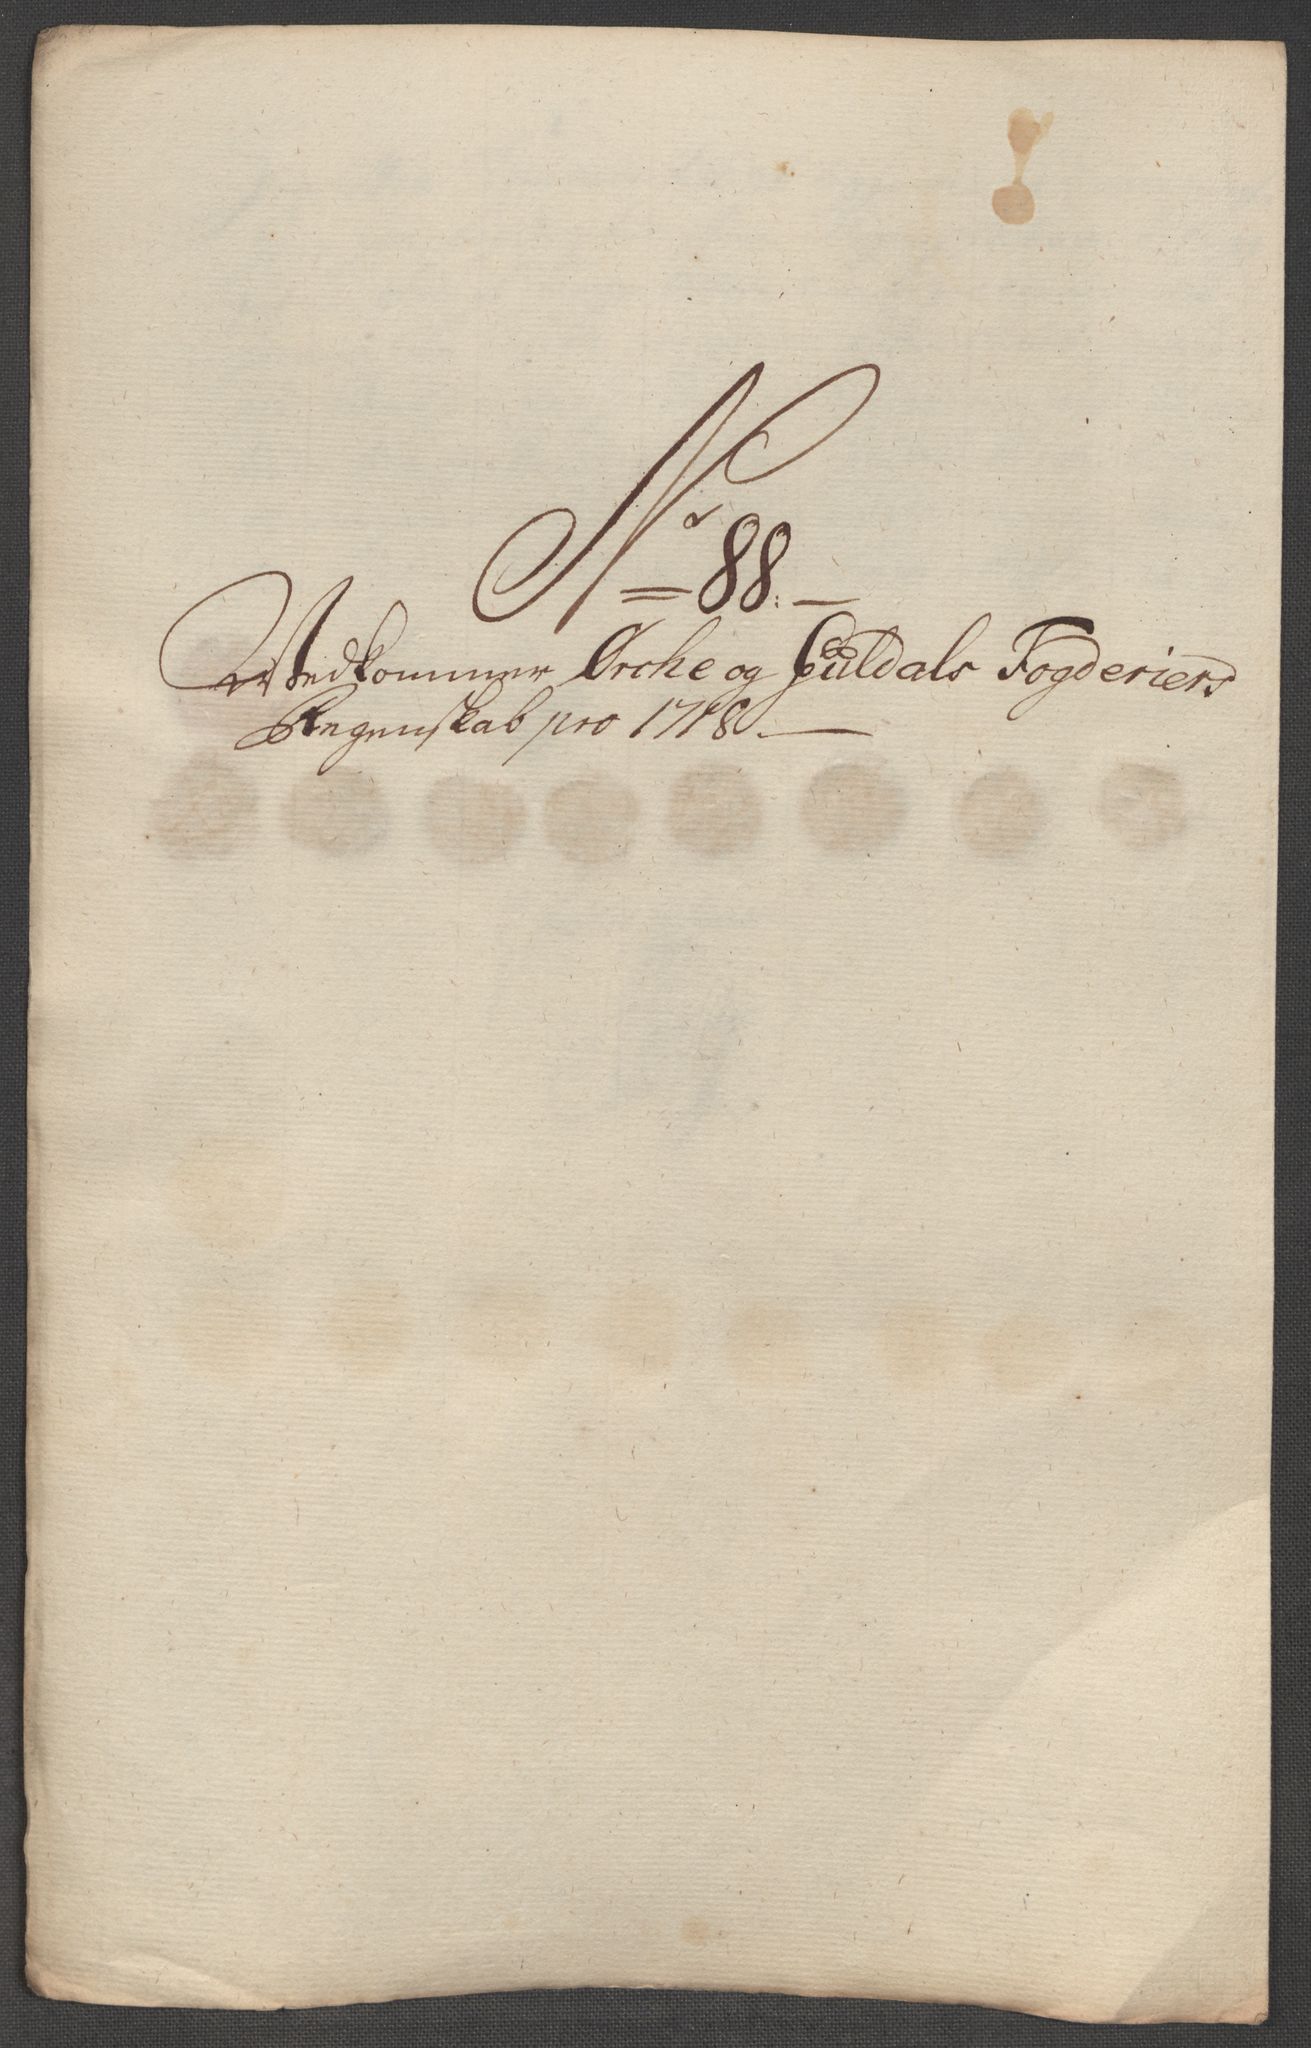 No 88.
Vedkommer Orche og Guldals Fogderiers
Regenskab pro 1718.